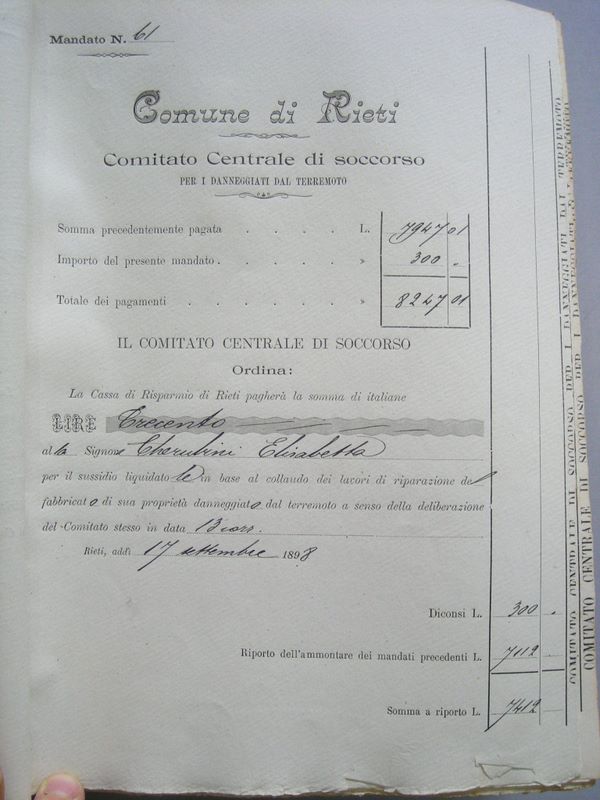 Mandato N. 61
Comune di Rieti
Comitato Centrale di soccorso
PER I DANNEGGIATI DAL TERREMOTO
Somma precedentemente pagata . . . . L. 7947 01
Importo del presente mandato . . . . . » 300 "
Totale dei pagamenti . . . . . . » 8247 01
IL COMITATO CENTRALE DI SOCCORSO
Ordina:
La Cassa di Risparmio di Rieti pagherà la somma di italiane
LIRE Trecento
alla Signora Cherubini Elisabetta
per il sussidio liquidatole in base al collaudo dei lavori di riparazione del
fabbricato di sua proprietà danneggiato dal terremoto a senso della deliberazione
del Comitato stesso in data 13 cors.
Rieti, addì 17 settembre 1898
Diconsi L. 300 "
Riporto dell'ammontare dei mandati precedenti L. 7112
Somma a riporto L. 7412
COMITATO CENTRALE DI SOCCORSO PER I DANNEGGIATI DAL TERREMOTO
COMITATO CENTRALE DI SOCCORSO PER I DANNEGGIATI DAI TERREMOTO